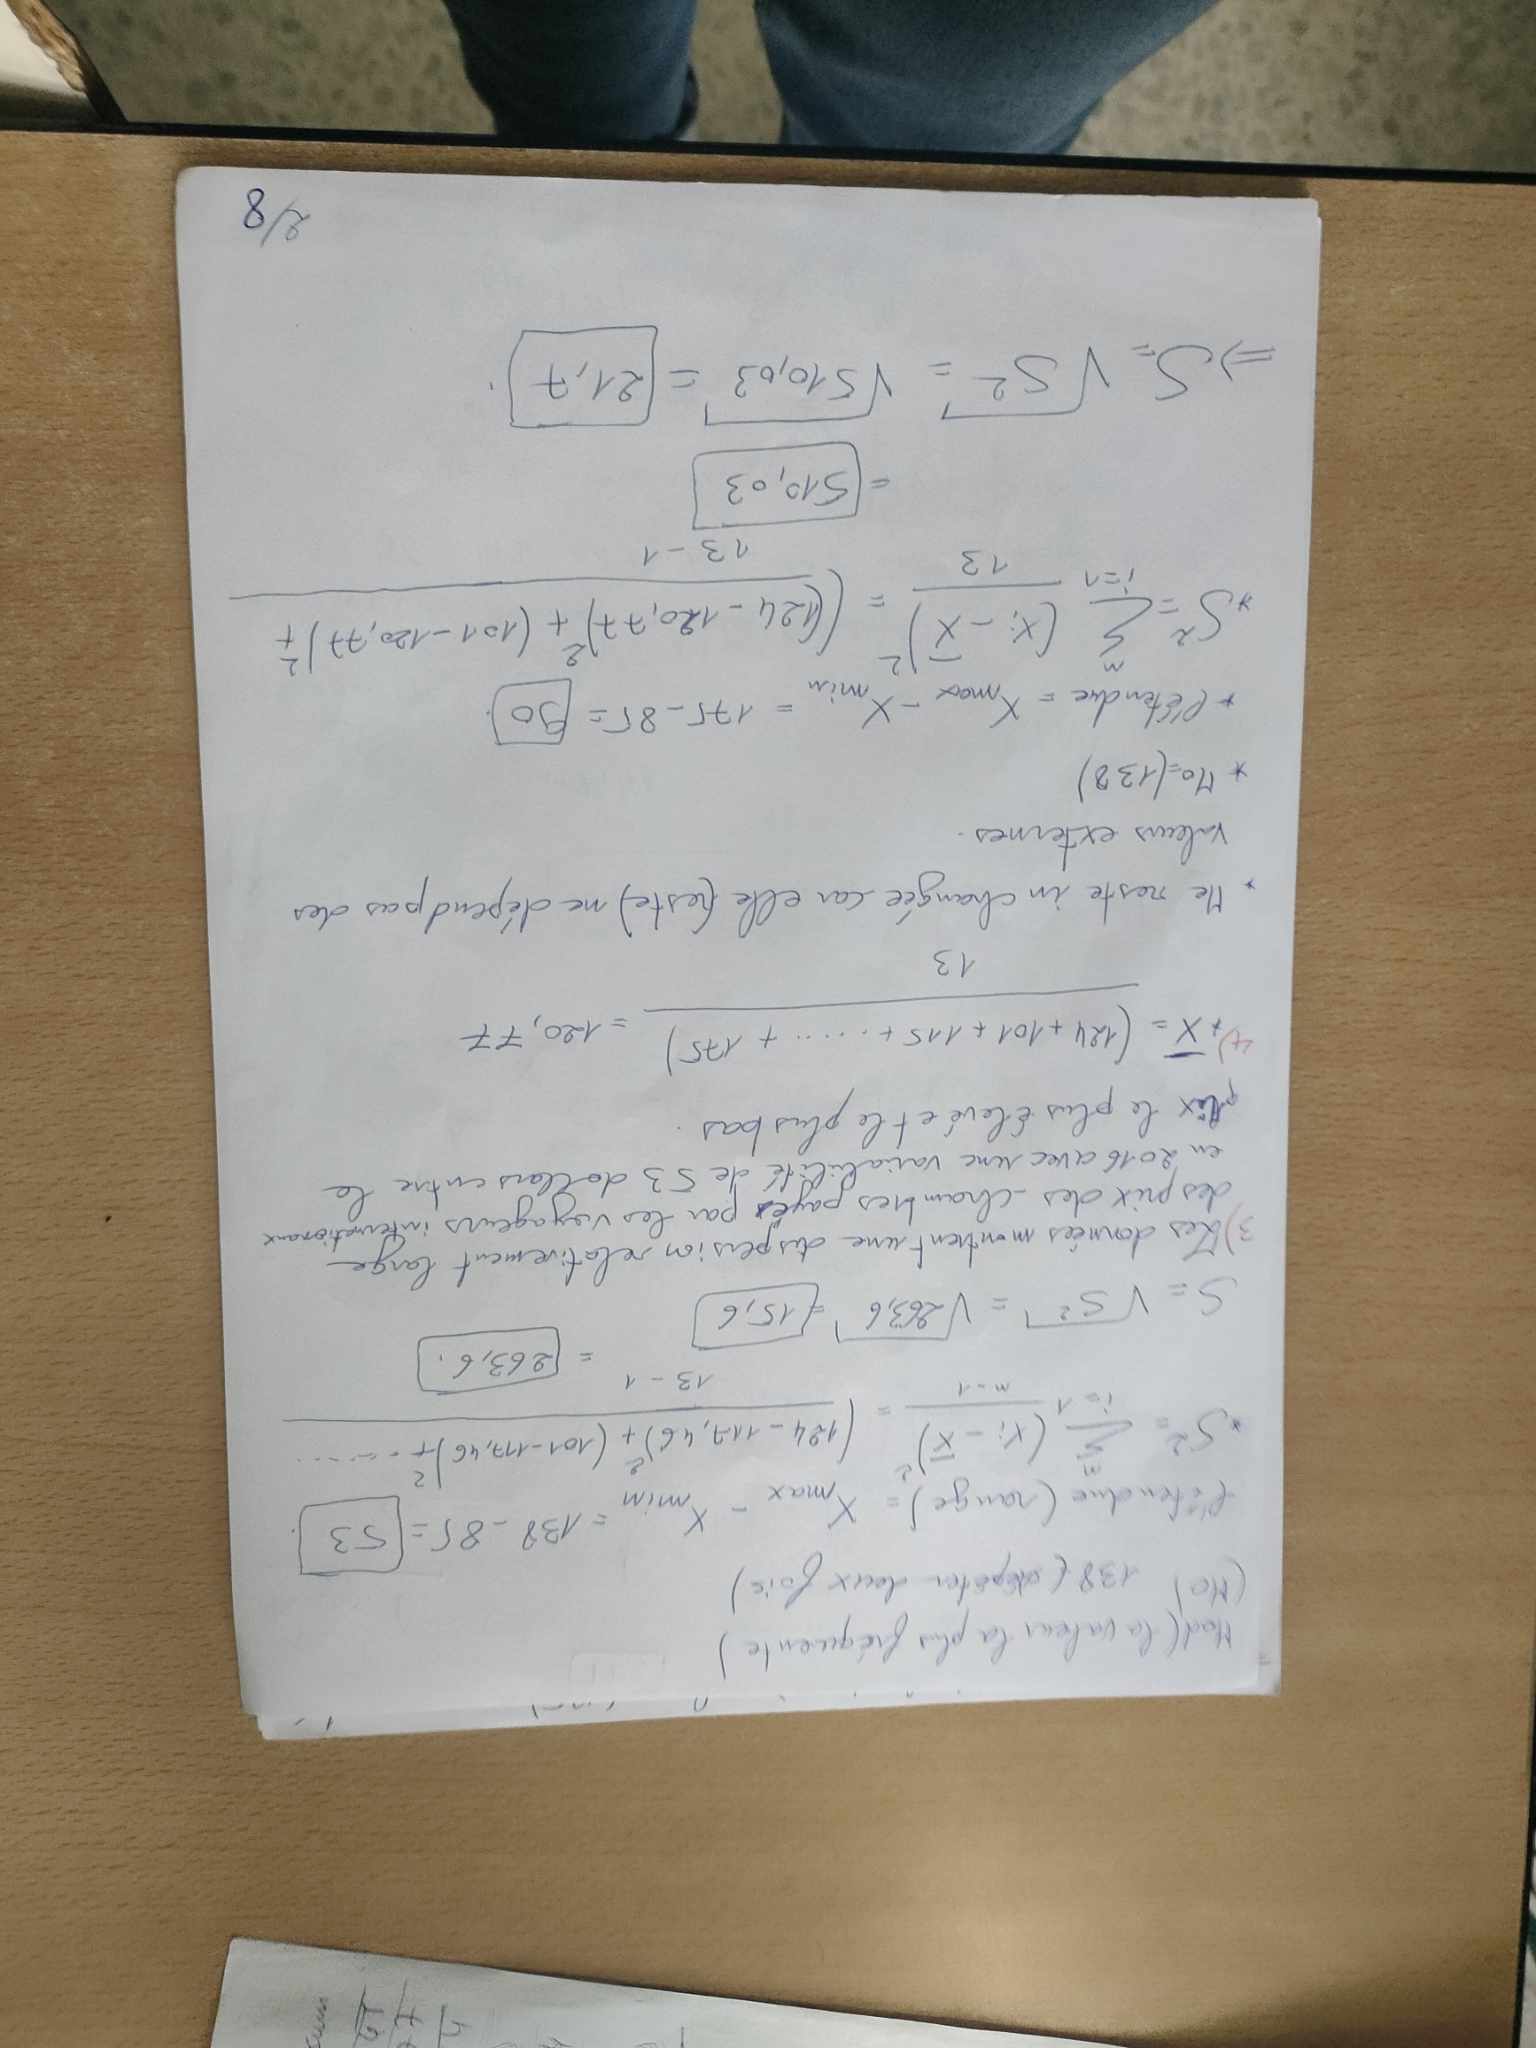 Mod (la valeur la plus fréquente)
(Mo) 138 (répéter deux fois)
l'étendue (range) = Xmax - Xmin = 138 - 85 = 53.
* S² = Σ (i=1, n) (Xi - X̄)² / n-1 = (124 - 117,46)² + (101 - 117,46)² + ...... / 13 - 1 = 263,6.
S = √S² = √263,6 = 15,6
3) Les données montrent une dispersion relativement large
des prix des chambres payés par les voyageurs internationaux
en 2016 avec une variabilité de 53 dollars entre le
prix le plus élevé et le plus bas.
4) * X̄ = (124 + 101 + 115 + ..... + 175) / 13 = 120,77
* Me reste in changée car elle (reste) ne dépend pas des
valeurs externes.
* Mo = (138)
* l'étendue = Xmax - Xmin = 175 - 85 = 90.
* S² = Σ (i=1, n) (Xi - X̄)² / 13 = (124 - 120,77)² + (101 - 120,77)² + / 13 - 1
= 510,03
⇒ S = √S² = √510,03 = 21,7.
2/8